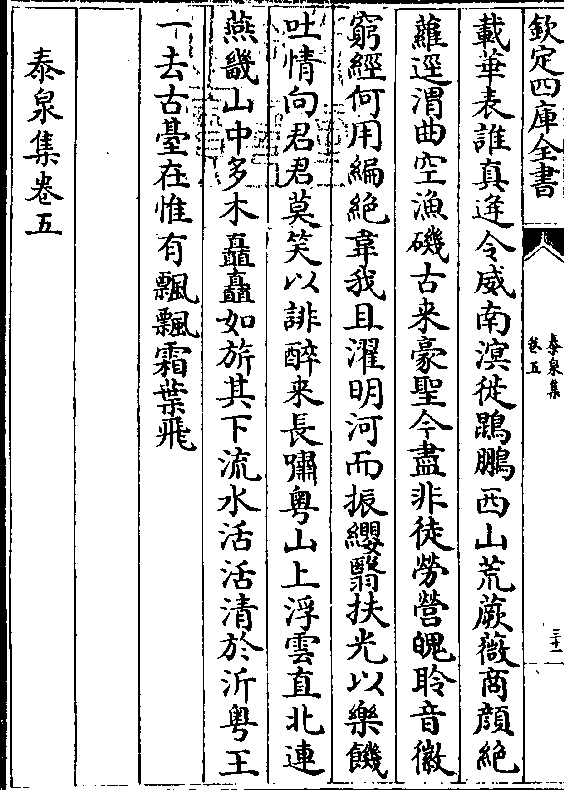 欽定四庫全書
泰泉集
卷五
三十一
載華表誰真逄令威南溟從鵾鵬西山荒蕨薇商顔絶
蘿逕渭曲空漁磯古来豪聖今盡非徒勞營魄聆音徽
窮經何用編絶韋我且濯明河而振纓翳扶光以樂饑
吐情向君君莫笑以誹醉来長嘯粤山上浮雲直北連
燕畿山中多木矗矗如旂其下流水活活清於沂粤王
一去古臺在惟有飄飄霜葉飛
泰泉集卷五